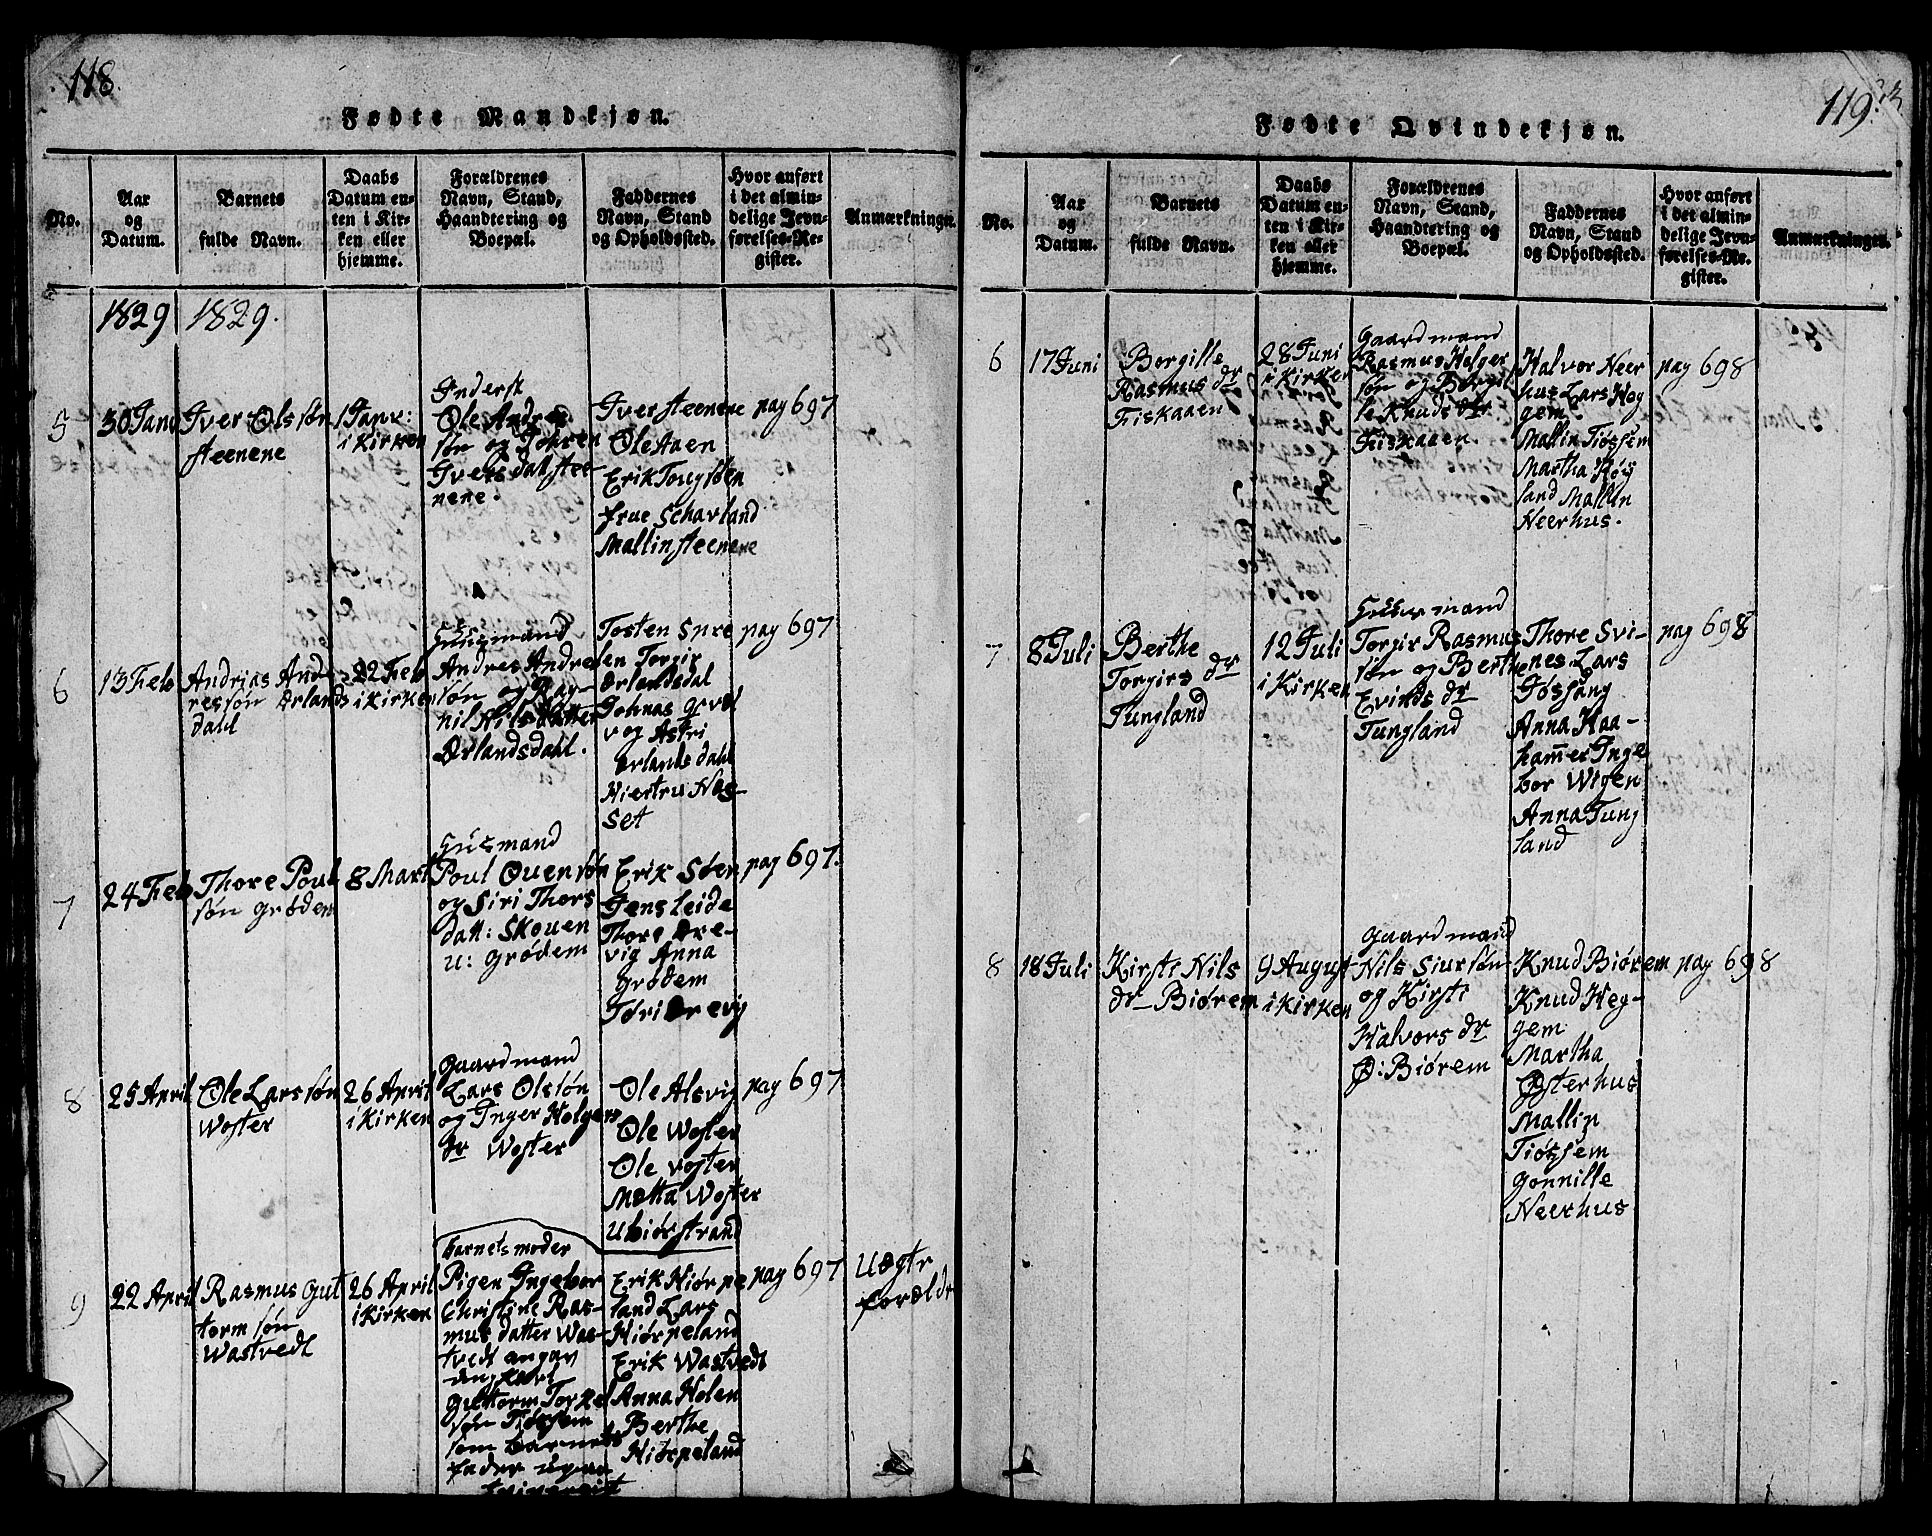 118.
Fødte Mandkjøn.
No.
Aar
og
Datum.
Barnets
fulde Navn.
Daabs
Datum en-
ten i Kir-
ken eller
hjemme.
Forældrenes
Navn, Stand,
Haandtering og
Boepæl.
Faddernes
Navn, Stand
og Opholdssted.
Hvor anført
i det almin-
delige Jevn-
førelses-Re-
gister.
Anmærkninger.
1829 1829.
5
30 Janu
Iver Olssøn
steenene
i Kirken
Inderst
Ole Andre
søn og
Ivers datt stee-
nene.
Iver steenene
Ole Aaen
Erik Tougsten
frue Schavland
Mallin steenene
pag 697
6
13 Feb
Andrias And
ressøn Ørlands
dahl
22 Feb
i Kirken
Huusmand
Andres Andre
søn og Rag-
nil Nilsdatter
Ørlandsdahl.
Tosten Snre
Torgir
Ørlandsdal
Johnas
og Astri
Ørlandsdahl
Niertru Nes-
set
pag 697
7
24 Feb
Thore Poul
søn Grødem
8 Mart
Huusmand
Poul Ouensøn
og Siri Thors
datt: Skouen
u: Grødem
Erik Søen
Jens Leide
Thore Dre-
vig Anna
Grødem
Tøri Drevig
pag 697.
8
25 April
Ole Larssøn
Woster
26 April
i Kirken
Gaardmand
Lars Olssøn
og Inger Holgers
dr Woster
Ole Alsvig
Ole Woster
Ole voster
Metta Woster
Ubiørstrand
pag 697
9
22 April
Rasmus Gut
torm søn
Wastvedt
26 April
i Kirken
barnets moder
Pigen Ingebor
Christine Ras-
mus datter Was-
tvedt angav
ungkarl
Guttorm Torkel
søn Tiøssem
som barnets
fader
Erik Hiørpe
land Lars
Hiørpeland
Erik Wastvedt
Anna Holen
Berthe
Hiørpeland
pag 697
Uegte
foræld
119.
Fødte Qvindekjøn.
No.
Aar
og
Datum.
Barnets
fulde Navn.
Daabs
Datum en-
ten i Kir-
ken eller
hjemme.
Forældrenes
Navn, Stand,
Haandtering og
Boepæl.
Faddernes
Navn, Stand
og Opholdssted.
Hvor anført
i det almin-
delige Jevn-
førelses-Re-
gister.
Anmærkninger.
6
17 Juni
Borgille
Rasmus dr
Fiskaaen
28 Juni
i Kirken
Gaardmand
Rasmus Holger
søn og Borgil
le Knuds dr
Fiskaaen.
Halvor Neer
hus Lars Heg
gem.
Mallin Tiøssem
Martha Høis
land Mallin
Neerhus.
pag 698
7
8 Juli
Berthe
Torgirs dr
Tungland
12 Juli
i Kirken
Huusmand
Torgir Rasmus
søn og Berthe
Evinds dr
Tungland
Thore Svi-
nes Lars
Jøssang
Anna Haa-
hammer Inge
bor Wigen
Anna Tung
land
pag 698
8
18 Juli
Kirsti Nils
dr Biørem
9 August
i Kirken
Gaardmand
Nils Siursøn
og Kirsti
Halvors dr
Ø: Biørem
Knud Biørem
Knud Heg-
gem
Martha
Østerhus
Mallin
Tiøssem
Gonnille
Neerhus
pag 698